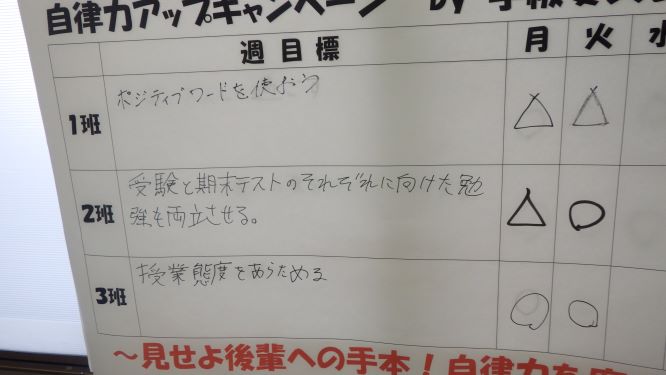 自律力アップキャンペーン by 学級委
週目標 月 火 水
1班 ポジティブワードを使おう △ △
2班 受験と期末テストのそれぞれに向けた勉
強も両立させる。 △ ○
3班 授業態度をあらためる ○ ○
～見せよ後輩への手本！自律力を